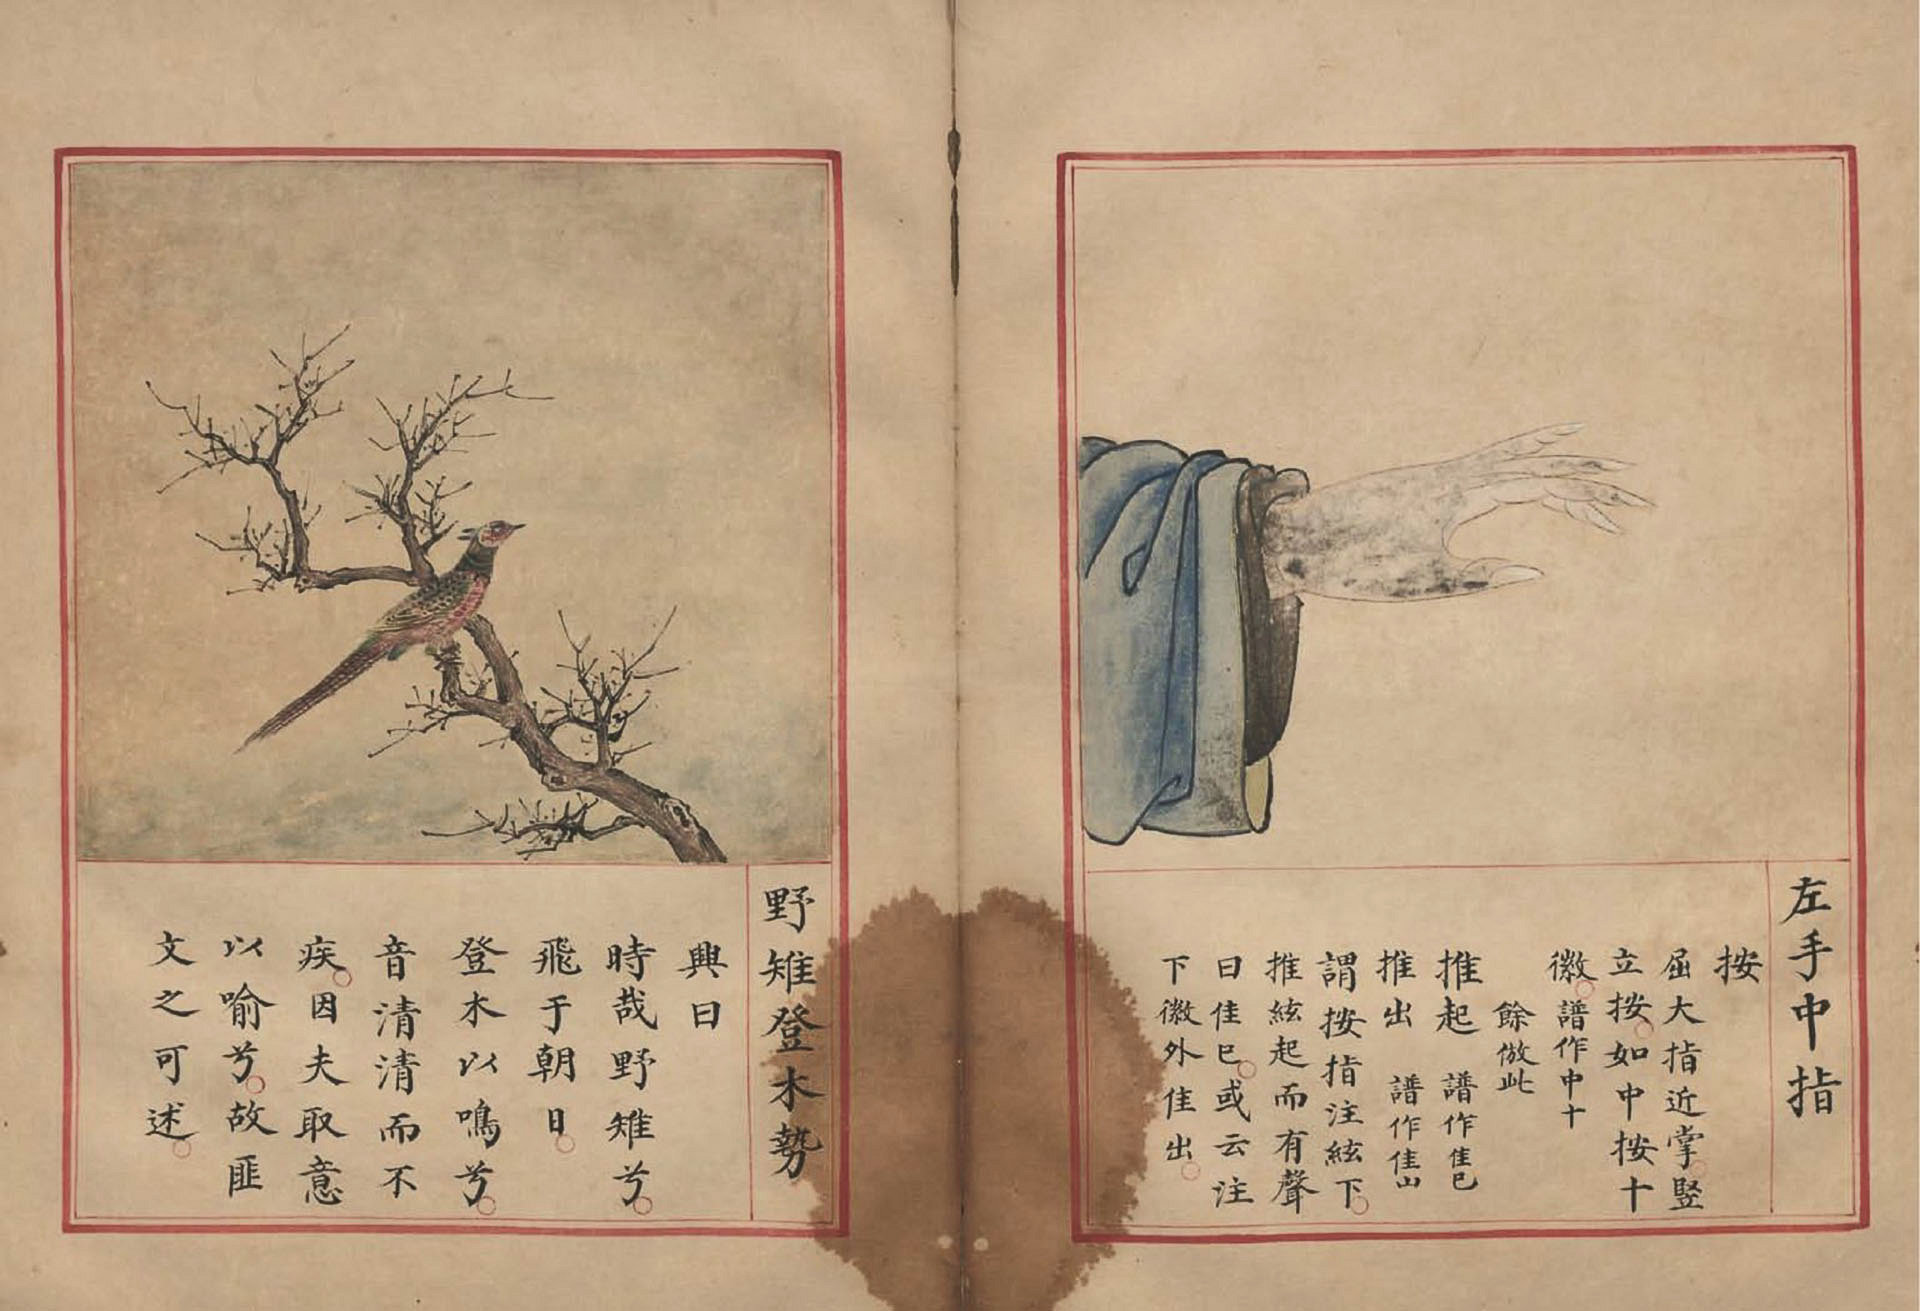 左手中指
按
屈大指近掌竖
立按如中按十
徽譜作中十
餘倣此
推起 譜作隹巳
推出 譜作隹山
謂按指注絃下
推絃起而有聲
曰隹巳或云注
下徽外隹出
野雉登木勢
興曰
時哉野雉兮
飛于朝日
登木以鳴兮
音清清而不
疾因夫取意
以喻兮故匪
文之可述